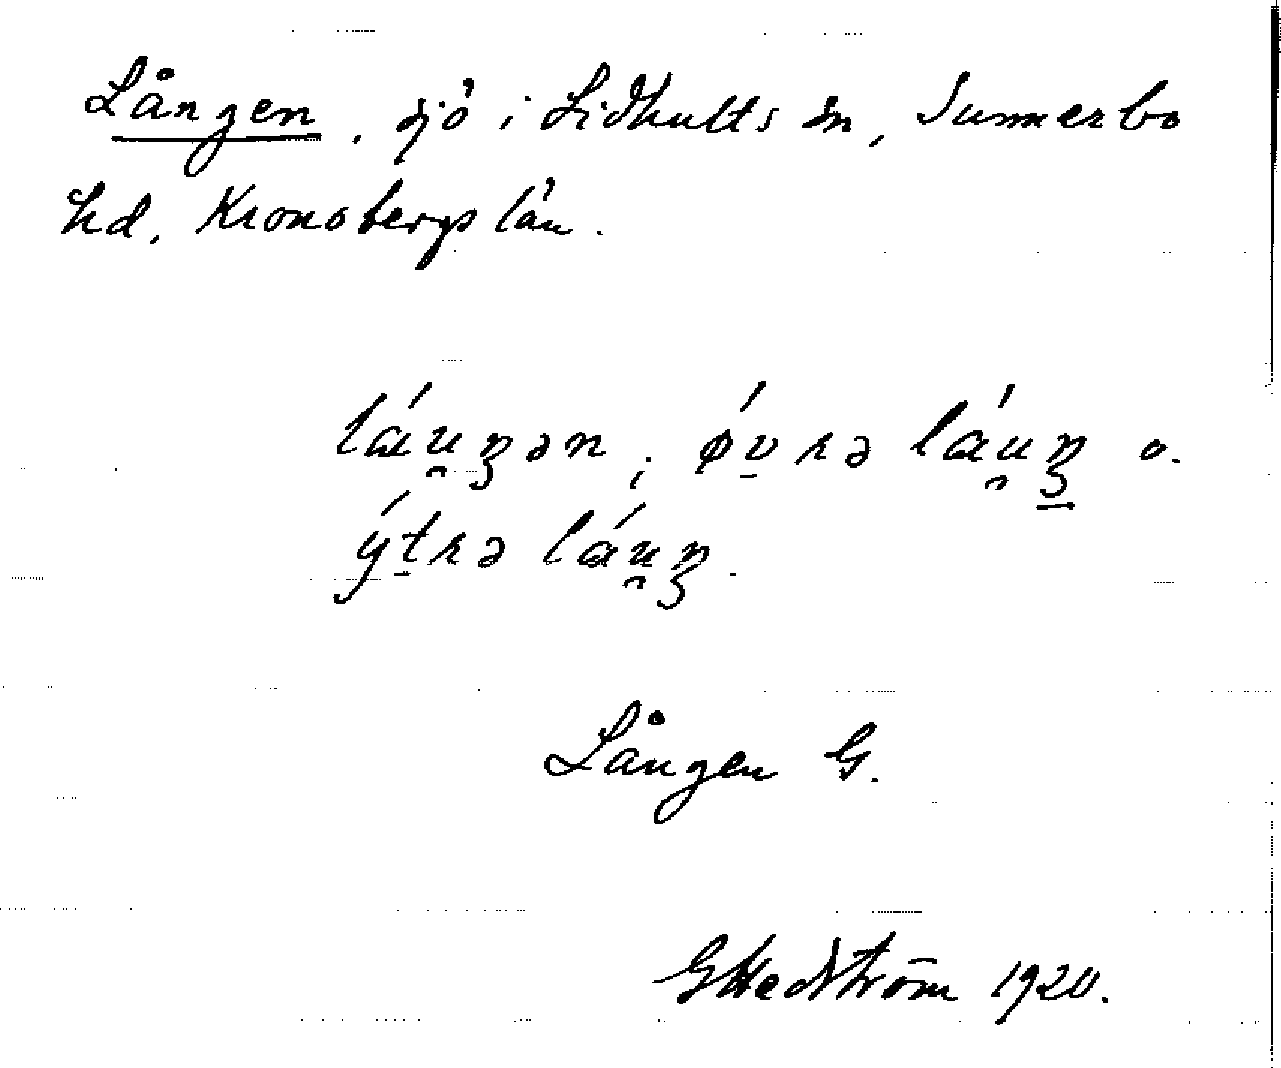 Lången, sjö i Lidhults sn, Sunnerbo
hd, Kronobergs län.
lá̯uŋən; ǿvrə lá̯uŋ o.
ýtrə lá̯uŋ.
Lången G.
GHedström 1920.